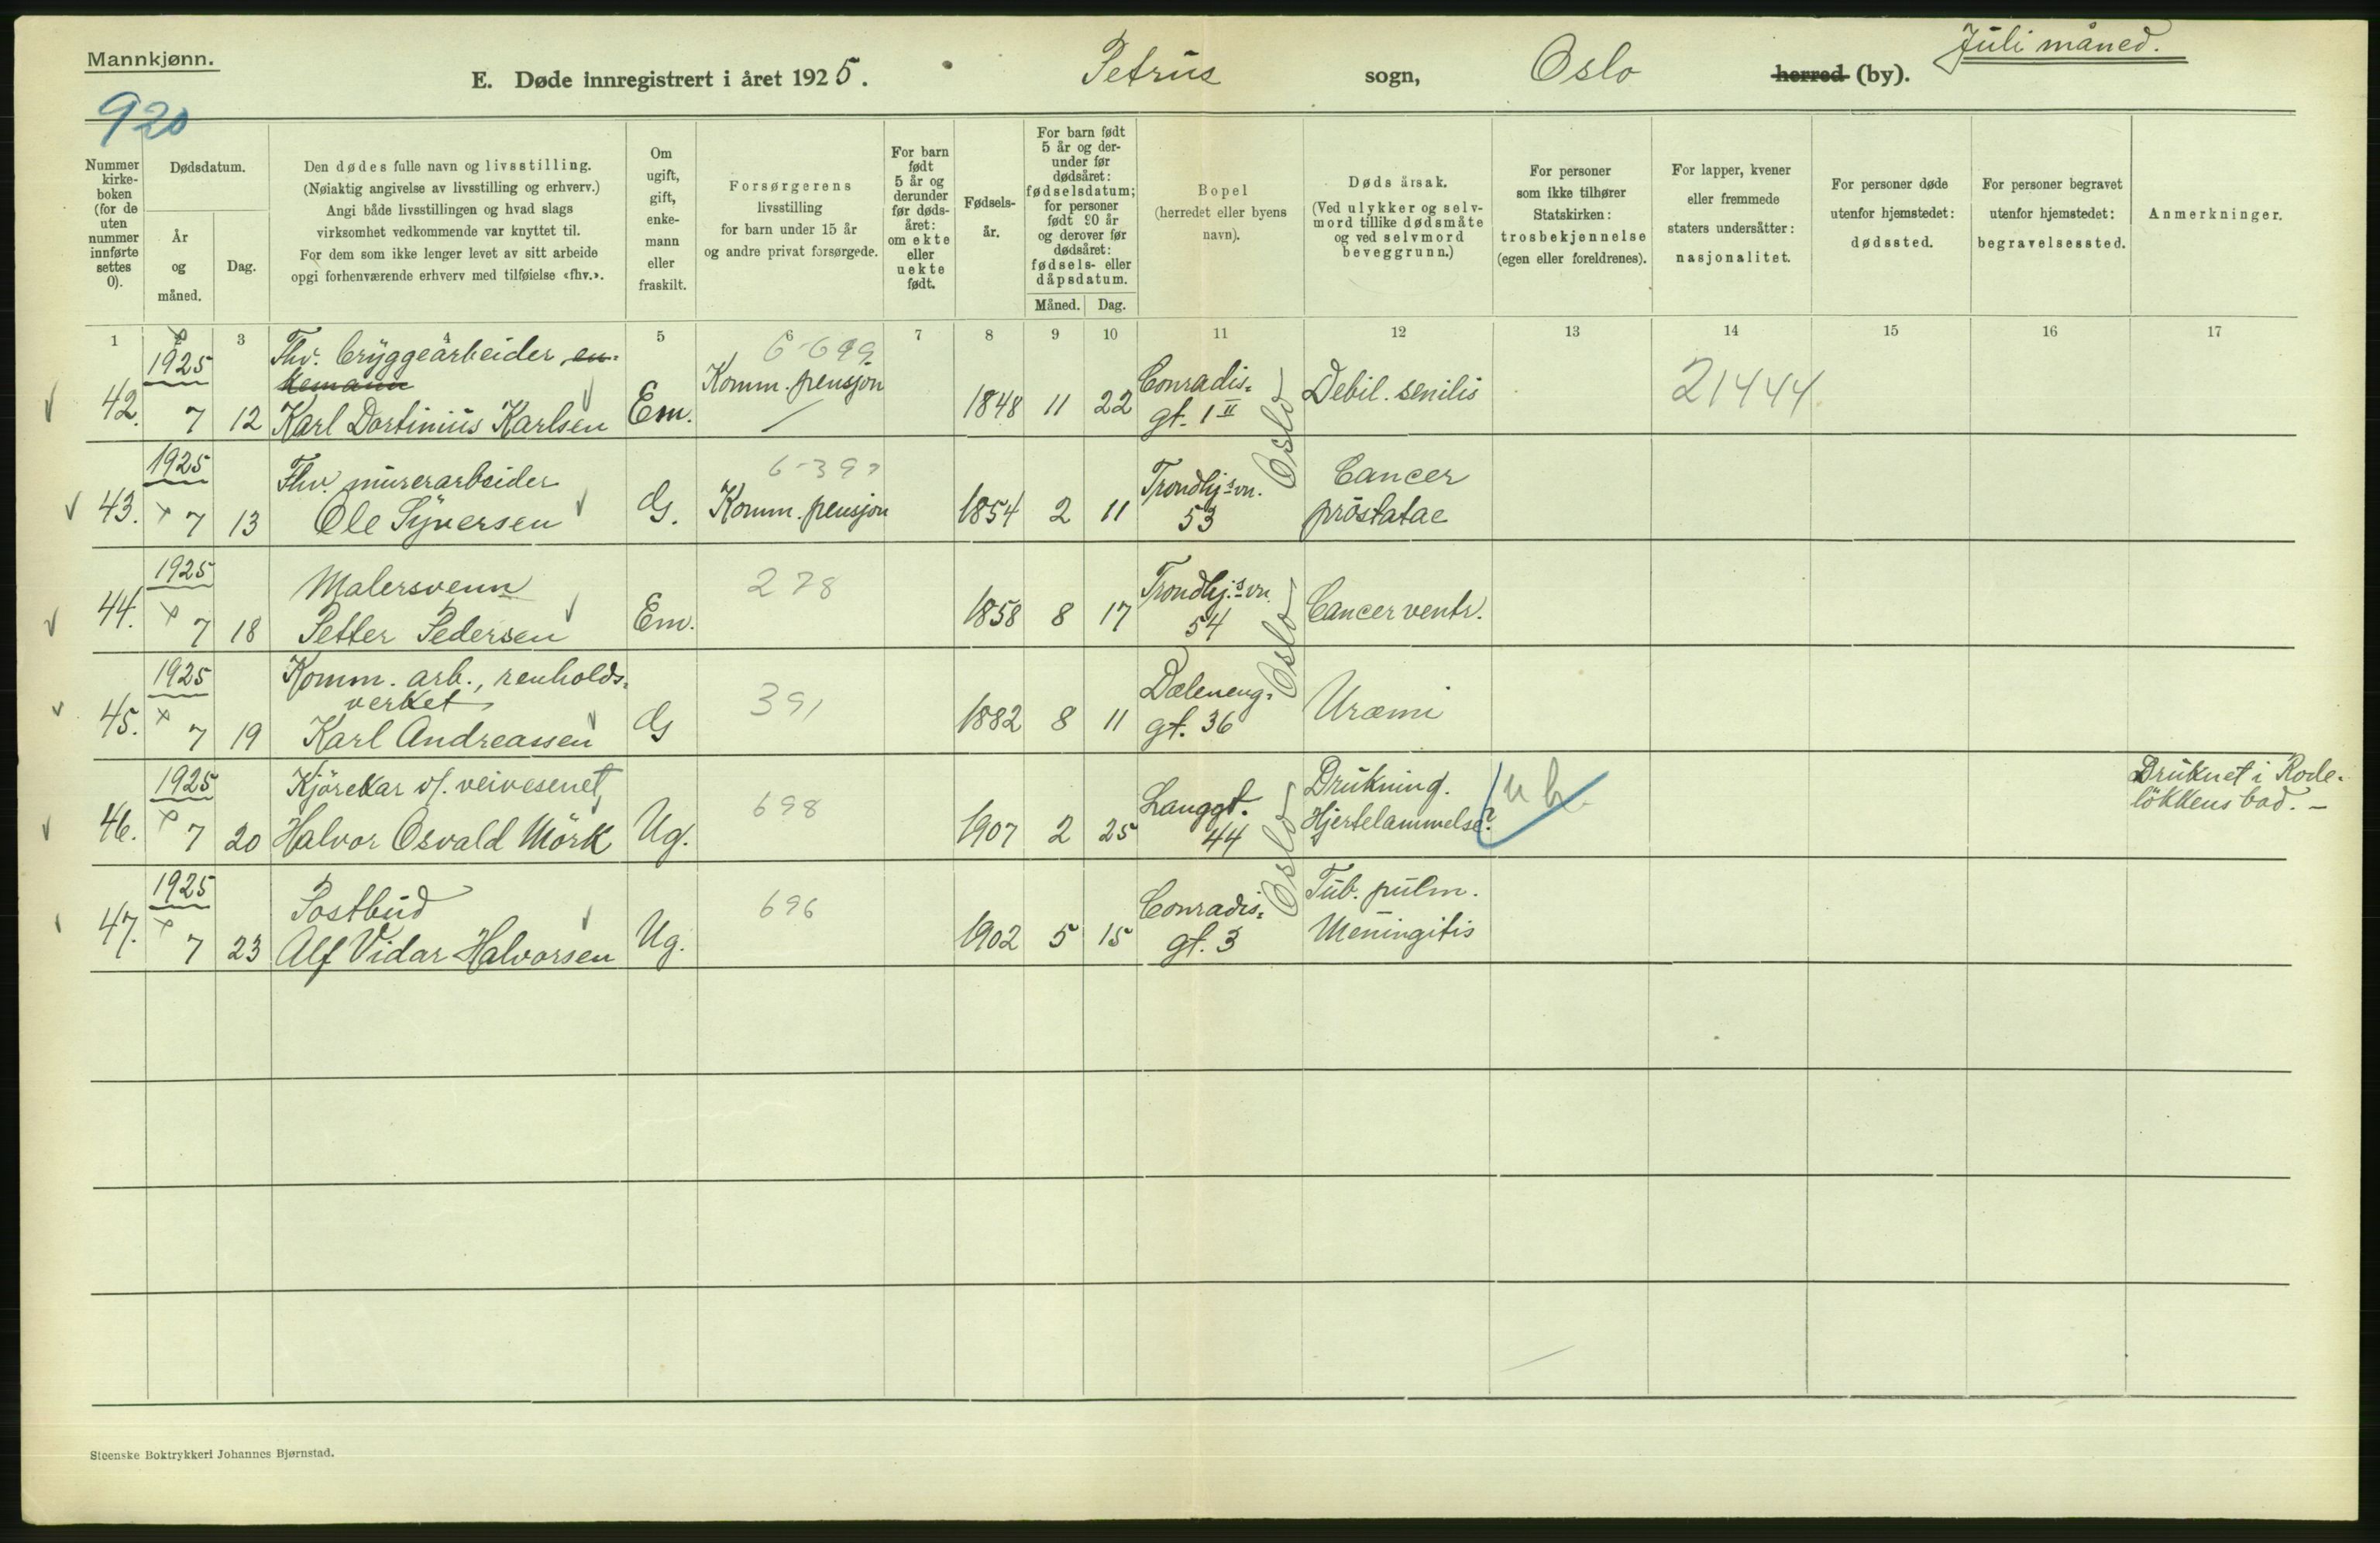 Mannkjønn.
E. Døde innregistrert i året 1925.
Petrus sogn,
Oslo herred (by).
Juli måned.
920
Nummer kirke-boken (for de uten nummer innførte settes 0).
Dødsdatum.
År og måned.
Dag.
Den dødes fulle navn og livsstilling.
(Nøiaktig angivelse av livsstilling og erhverv.)
Angi både livsstillingen og hvad slags
virksomhet vedkommende var knyttet til.
For dem som ikke lenger levet av sitt arbeide
opgi forhenværende erhverv med tilføielse «fhv.».
Om ugift, gift, enke-mann eller fraskilt.
Forsørgerens
livsstilling
for barn under 15 år
og andre privat forsørgede.
For barn født 5 år og derunder før døds-året: om ekte eller uekte født.
Fødsels-år.
For barn født 5 år og der-under før dødsåret: fødselsdatum; for personer født 90 år og derover før dødsåret: fødsels- eller dåpsdatum.
Måned. Dag.
Bopel
(herredet eller byens navn).
Dødsårsak.
(Ved ulykker og selv-mord tillike dødsmåte og ved selvmord beveggrunn.)
For personer som ikke tilhører Statskirken: trosbekjennelse (egen eller foreldrenes).
For lapper, kvener eller fremmede staters undersåtter: nasjonalitet.
For personer døde utenfor hjemstedet: dødssted.
For personer begravet utenfor hjemstedet: begravelsessted.
Anmerkninger.
1 2 3 4 5 6 7 8 9 10 11 12 13 14 15 16 17
1925 Fhv. bryggearbeider, en- 6-699
kemann Komm. pensjon Conradis- 21444
42. 7 12 Karl Dortinius Karlsen Em. 1848 11 22 gt. 1 II Debil. senilis
Oslo
1925 Fhv. murerarbeider 6-39 Trondhj.svn. Cancer
43. 7 13 Ole Syversen G. Komm. pensjon 1854 2 11 53 prostatae
1925 Malersvenn 278 Trondhj.svn.
44. 7 18 Petter Pedersen Em. 1858 8 17 54 Cancer ventr.
Oslo
1925 Komm. arb., renholds-
verket 391 Dæleneng-
45. 7 19 Karl Andreassen G 1882 8 11 gt. 36 Uræmi
1925 Kjörekar v/. veivesenet, 698 Langgt. Drukning. Druknet i Rode-
46. 7 20 Halvor Osvald Mörk Ug. 1907 2 25 44 Hjertelammelse? lökkens bad. –
Oslo
1925 Postbud 696 Conradis- Tub. pulm.
47. 7 23 Alf Vidar Halvorsen Ug. 1902 5 15 gt. 3 Meningitis
Steenske Boktrykkeri Johannes Bjørnstad.